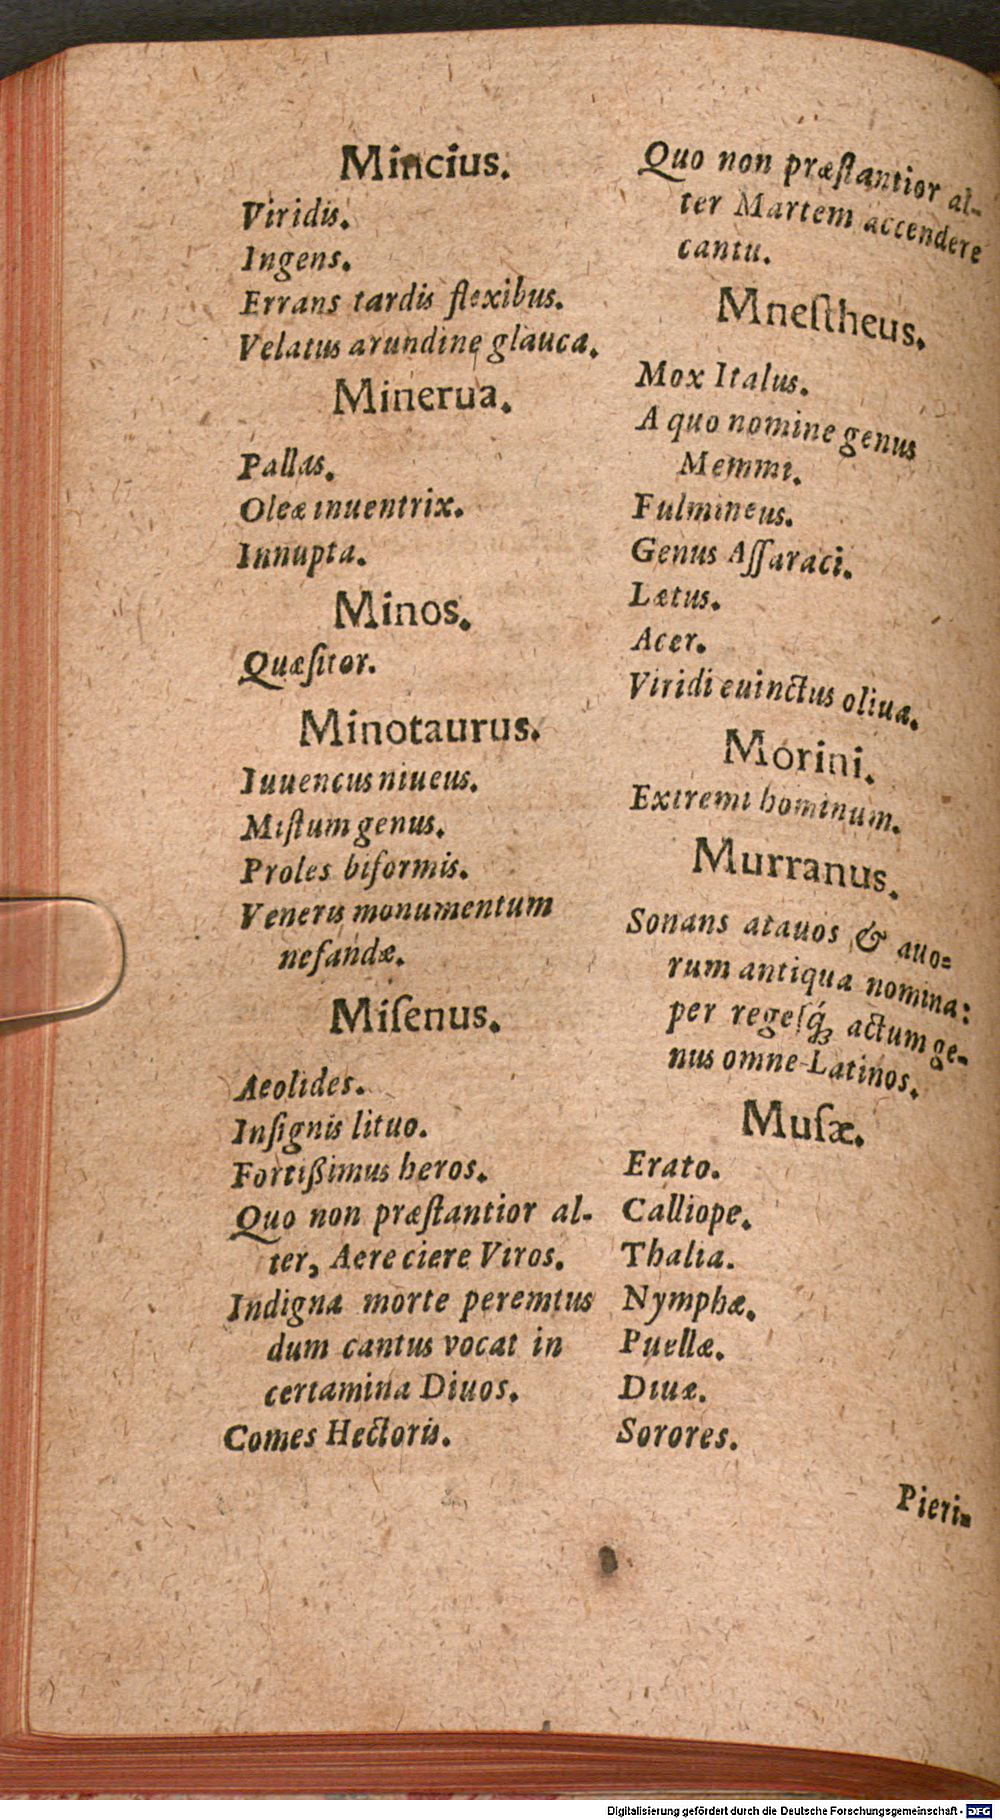 Mincius.
Viridis.
Ingens.
Errans tardis flexibus.
Velatus arundine glauca.
Minerua.
Pallas.
Oleæ inuentrix.
Innupta.
Minos.
Quæſitor.
Minotaurus.
Iuuencus niueus.
Miſtum genus.
Proles biformis.
Veneris monumentum
nefandæ.
Miſenus.
Aeolides.
Inſignis lituo.
Fortißimus heros.
Quo non præſtantior al-
ter, Aere ciere Viros.
Indigna morte peremtus
dum cantus vocat in
certamina Diuos.
Comes Hectoris.
Quo non præſtantior al-
ter Martem accendere
cantu.
Mneſtheus.
Mox Italus.
A quo nomine genus
Memmi.
Fulmineus.
Genus Aſſaraci.
Lætus.
Acer.
Viridi euinctus oliua.
Morini.
Extremi hominum.
Murranus.
Sonans atauos & auo-
rum antiqua nomina:
per regeſq́ꝫ actum ge-
nus omne Latinos.
Muſæ.
Erato.
Calliope.
Thalia.
Nymphæ.
Puellæ.
Diuæ.
Sorores.
Pieri-
Digitalisierung gefördert durch die Deutsche Forschungsgemeinschaft - DFG